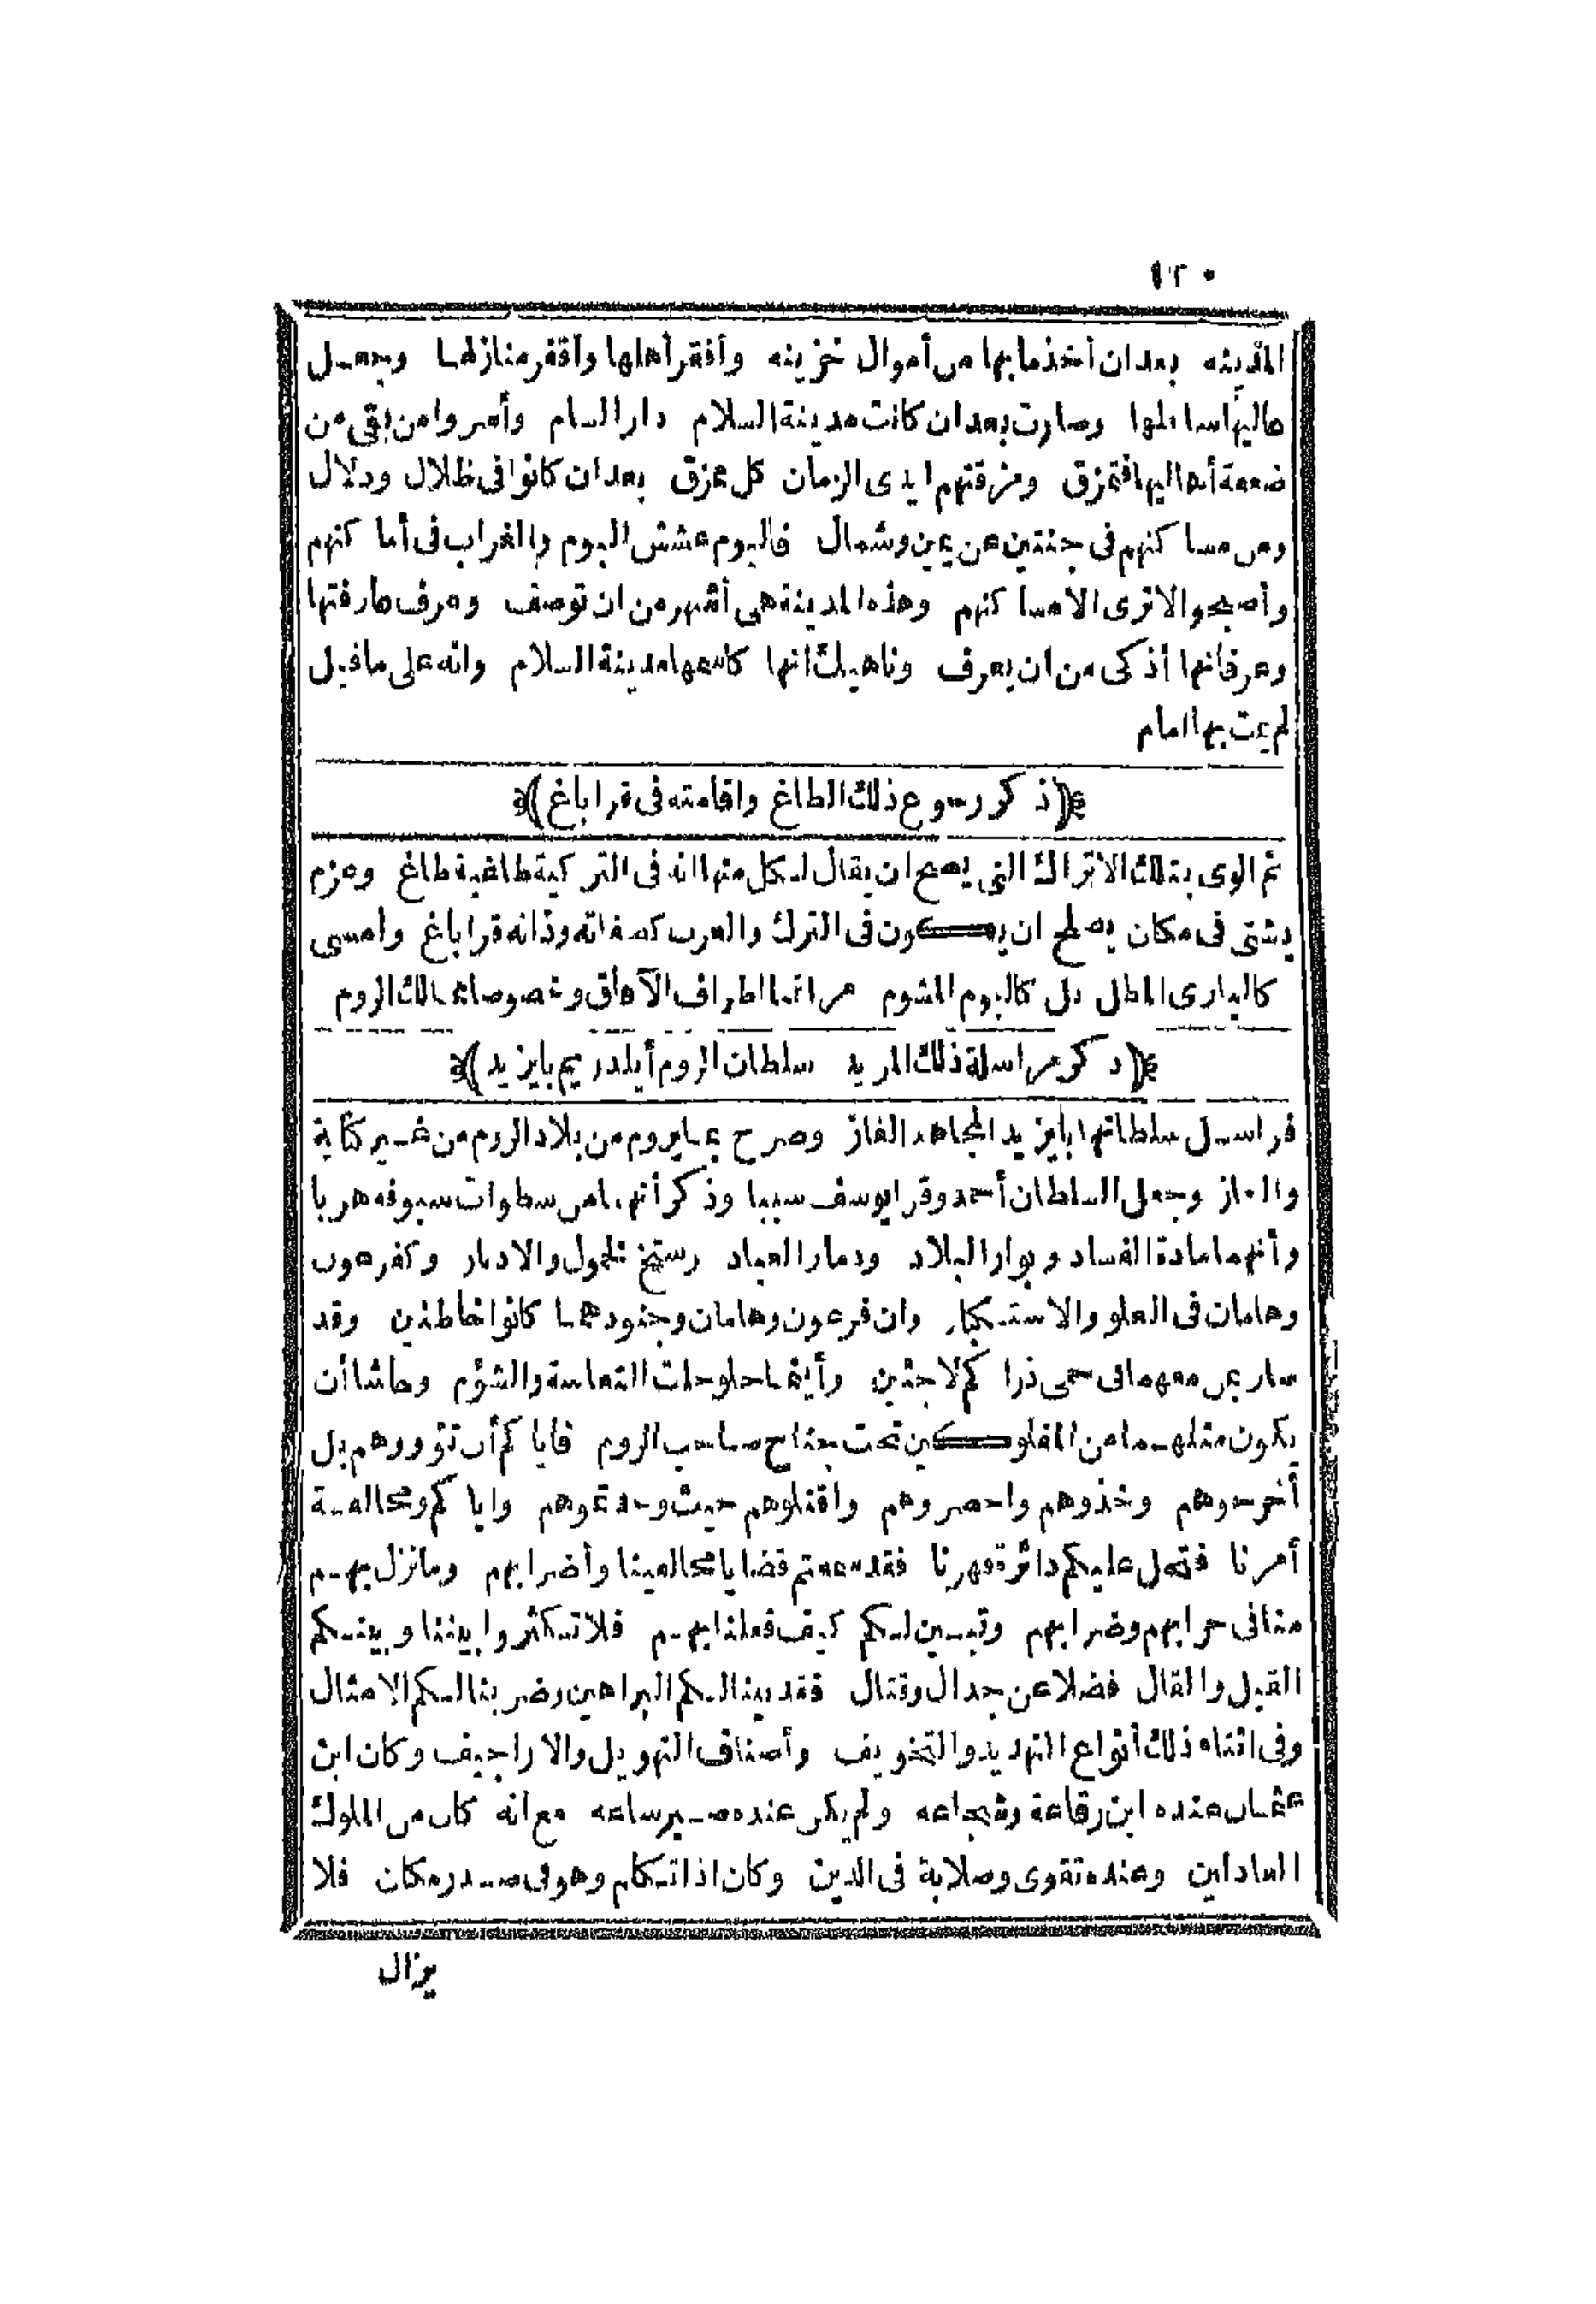 ١٢٠
المدينه بعد ان أخذ ما بها من أموال خزينه وأفقر أهلها وأقفر منازلها وجعل
عاليها سافلها وصارت بعد ان كانت مدينة السلام دار السام وأسروا من بقى من
ضعفة أهاليها فتمزق ومزقتهم ايدى الزمان كل ممزق بعد ان كانوا فى ظلال ودلال
ومن مساكنهم فى جنتين عن يمين وشمال فاليوم عشش البوم والغراب فى أماكنهم
وأصبحوا لا ترى الا مساكنهم وهذه المدينة هى أشهر من ان توصف وعرف عارفتها
وعرفانها أذكى من ان يعرف وناهيك انها كاسمها مدينة السلام وانه على ما قيل
لم يمت بها امام
﴿ذكر رجوع ذلك الطاغ واقامته فى قراباغ﴾
ثم الوى بتلك الاتراك التى يصح ان يقال لكل منها انه فى التركية طاغية طاغ وعزم
يشتى فى مكان يصلح ان يكون فى الترك والعرب كصفاته وذاته قراباغ وامسى
كالبازى المطل بل كالبوم المشوم مراقبا اطراف الآفاق وخصوصا ممالك الروم
﴿ذكر مراسلة ذلك المريد سلطان الروم أيلدريم بايزيد﴾
فراسل سلطانها بايزيد المجاهد الغاز وصرح بما يروم من بلاد الروم من غير كناية
والغاز وجعل السلطان أحمد وقرا يوسف سببا وذكر أنهما من سطوات سيوفه هربا
وأنهما مادة الفساد وبوار البلاد ودمار العباد الخمول والادبار وكفرعون
وهامان فى العلو والاستكبار وان فرعون وهامان وجنودهما كانوا خاطئين وقد
صار بمن معهما فى حمى ذراكم لاجئين وأينما حلو حلت التعاسة والشؤم وحاشا أن
يكون مثلهما من المفلوكين تحت جناح صاحب الروم فاياكم أن تؤووهم بل
أخرجوهم وخذوهم واحصروهم واقتلوهم حيث وجدتموهم واياكم ومخالفة
أمرنا فتحل عليكم دائرة قهرنا فقد سمعتم قضايا مخالفينا وأضرابهم وما نزل بهم
منا فى حرابهم وضرابهم وتبين لكم كيف فعلنا بهم فلا تكثروا بيننا وبينكم
القيل والقال فضلا عن جدال وقتال فقد بينا لكم البراهين وضربنا لكم الامثال
وفى اثناء ذلك أنواع التهديد والتخويف وأصناف التهويل والاراجيف وكان ابن
عثمان عنده ابن رقاعة وشجاعه ولم يكن عنده صبر ساعه مع أنه كان من الملوك
العادلين وعنده تقوى وصلابة فى الدين وكان اذا تكلم وهو فى صدر مكان فلا
يزال